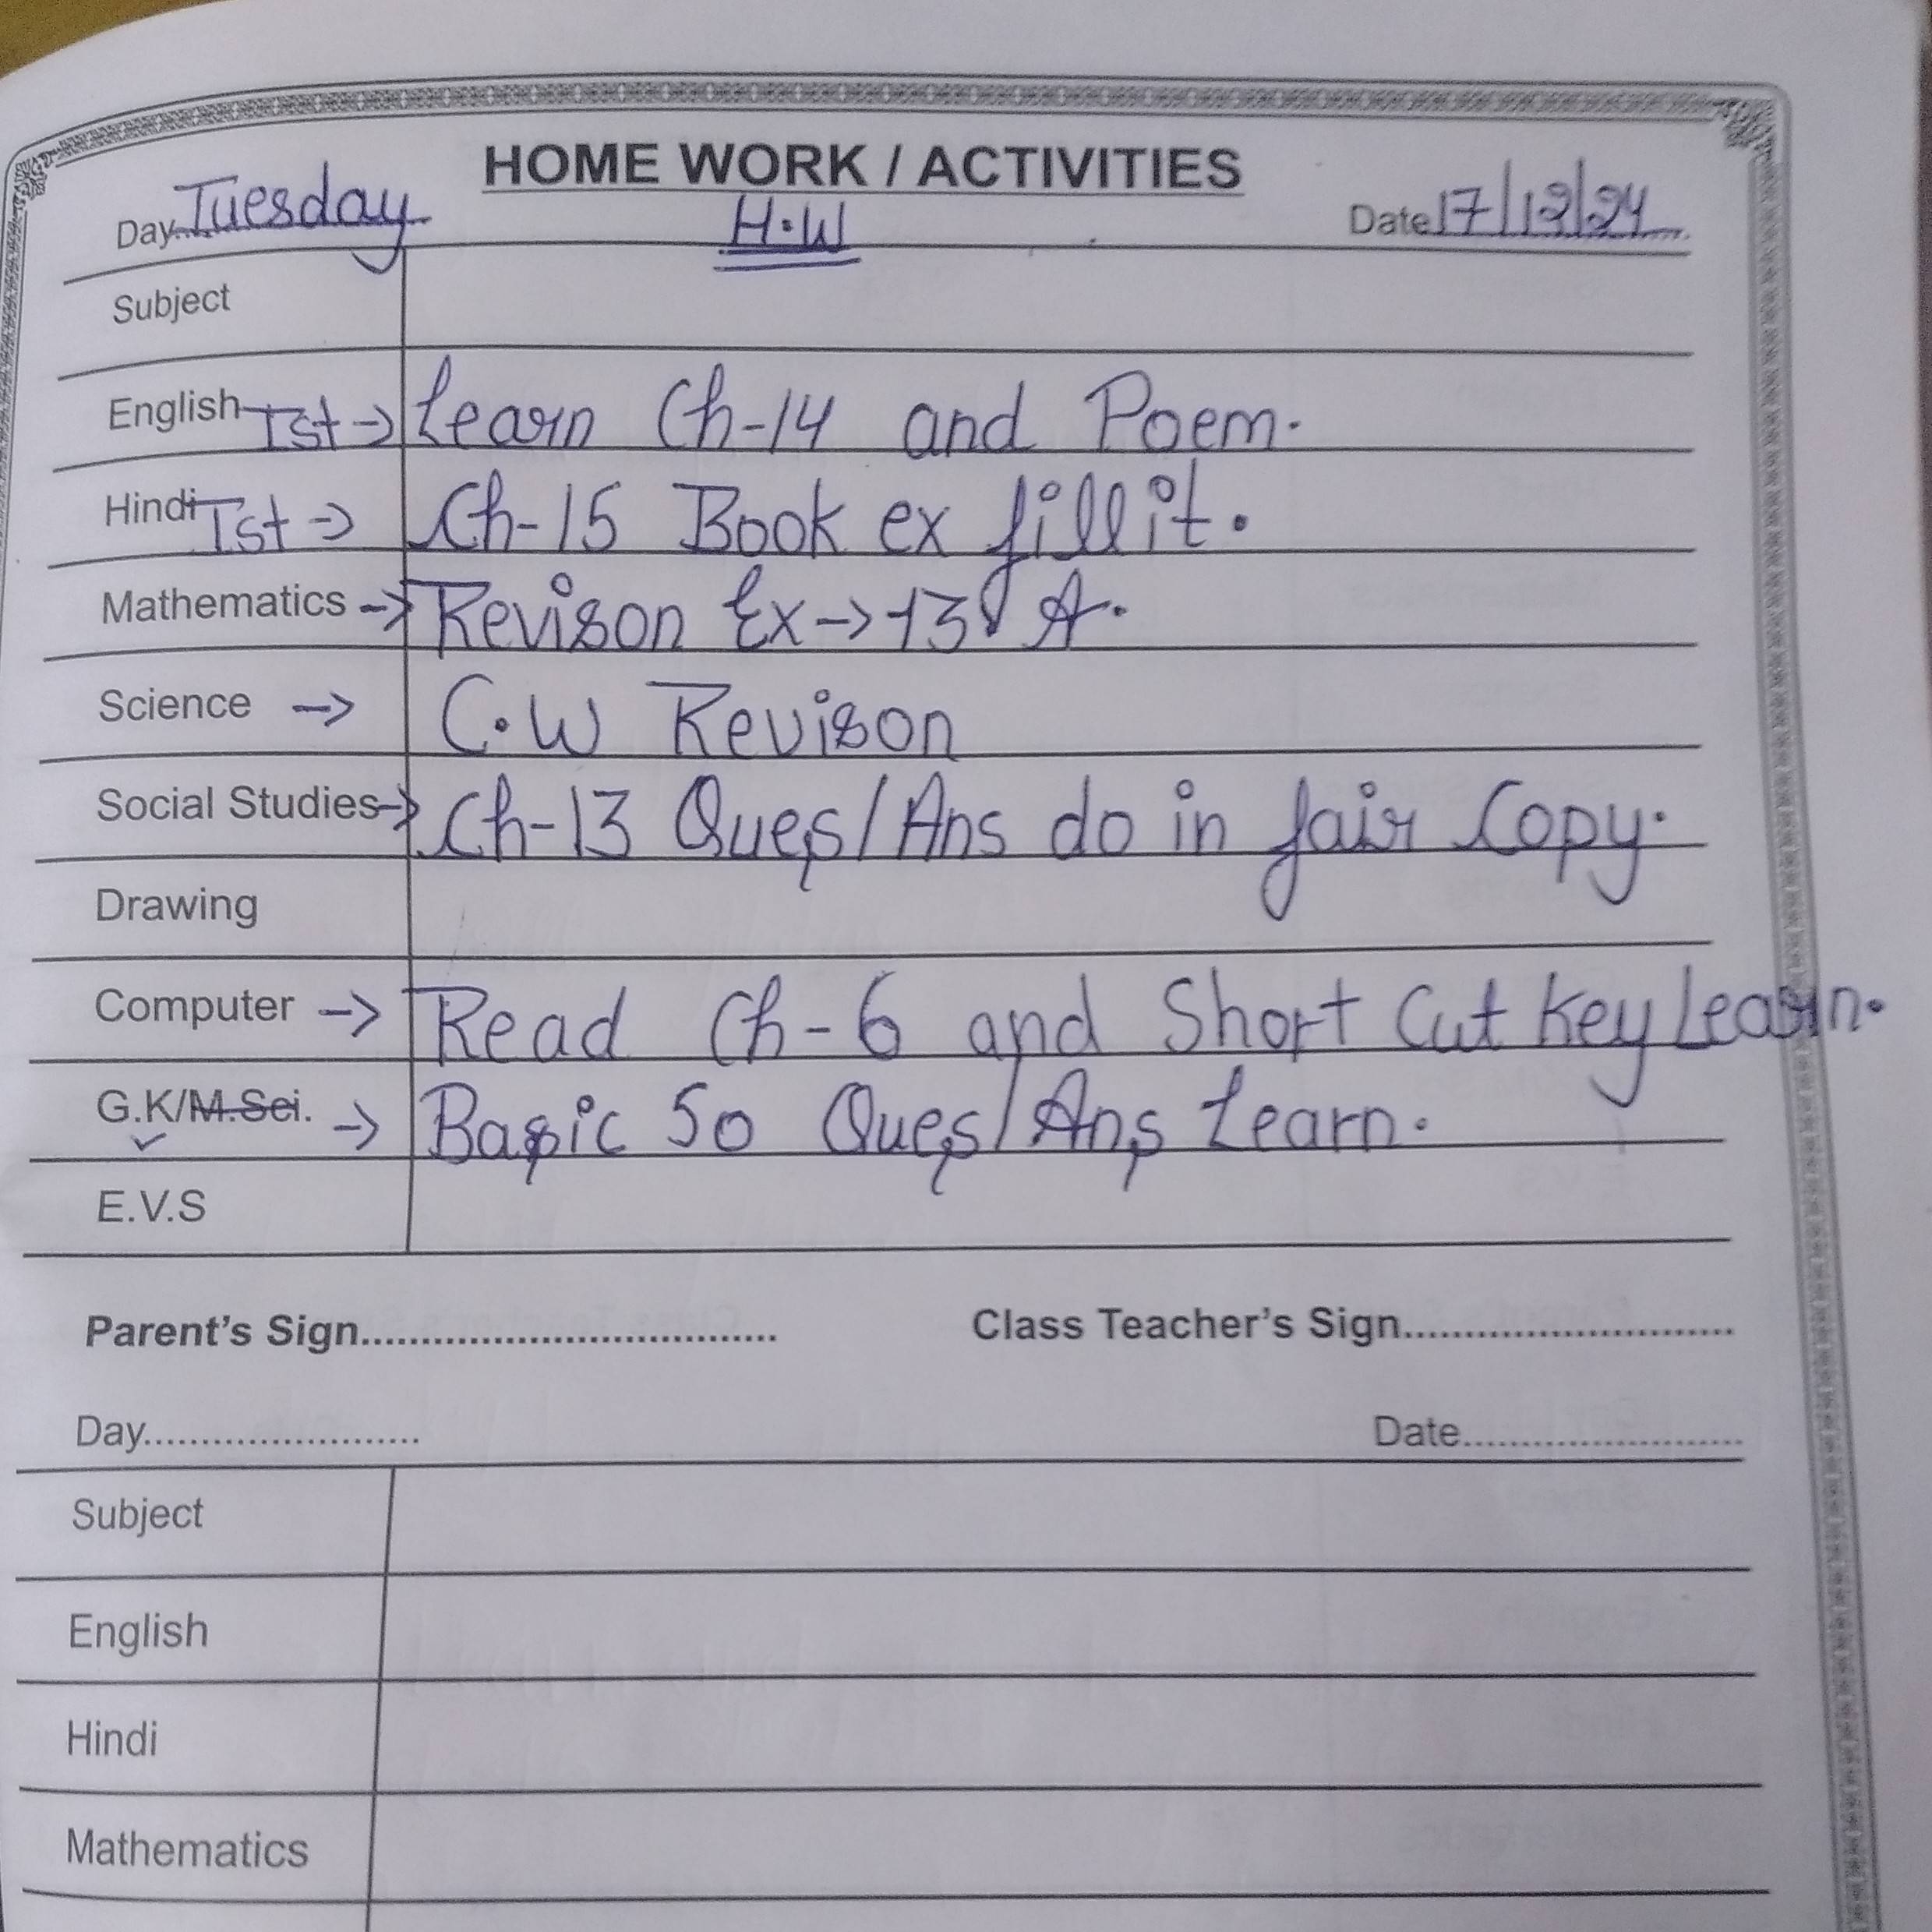 HOME WORK / ACTIVITIES
Day Tuesday H.W Date 17/12/24
Subject
English Ist -> Learn Ch-14 and Poem.
Hindi Ist -> Ch-15 Book ex fill it.
Mathematics -> Revison Ex -> 13 A.
Science -> C.W Revison
Social Studies -> Ch-13 Ques/Ans do in fair Copy.
Drawing
Computer -> Read Ch-6 and Short Cut Key Learn.
G.K/M.Sci. -> Basic 50 Ques/Ans Learn.
E.V.S
Parent's Sign.................................. Class Teacher's Sign...........................
Day....................... Date.......................
Subject
English
Hindi
Mathematics